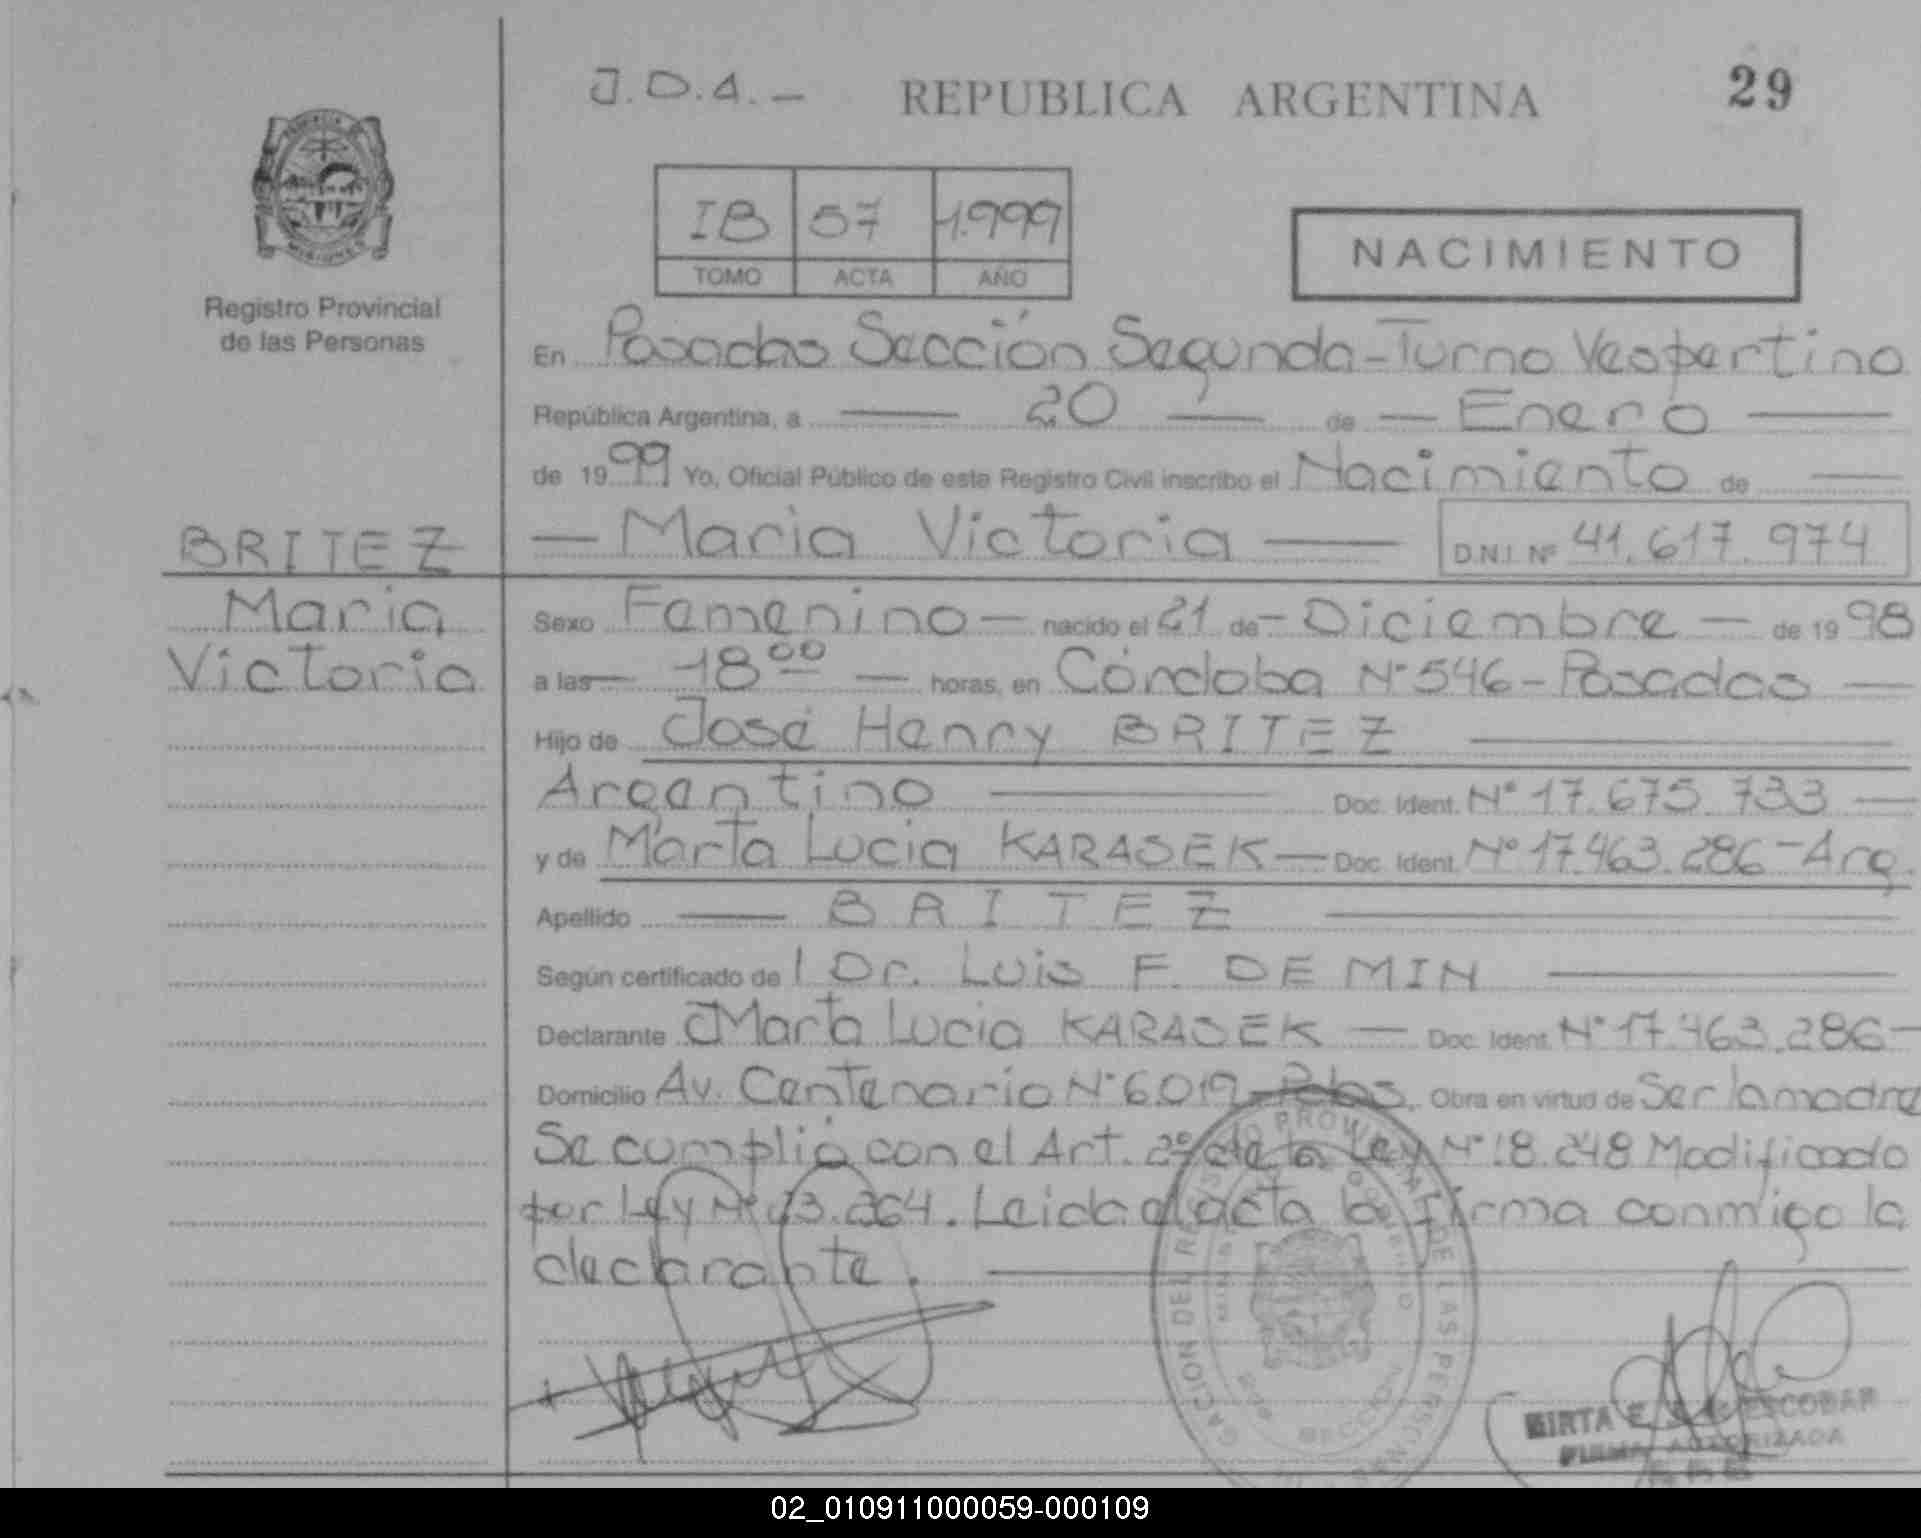 J.D.A.- REPUBLICA ARGENTINA 29
IB 57 1.999
TOMO ACTA AÑO
NACIMIENTO
Registro Provincial
de las Personas
En Posadas Sección Segunda-Turno Vespertino
República Argentina, a — 20 — de — Enero —
de 1999 Yo, Oficial Público de este Registro Civil inscribo el Nacimiento de —
— Maria Victoria — D.N.I. Nº 41.617.974
BRITEZ
Maria
Victoria
Sexo Femenino — nacido el 21 de - Diciembre — de 1998
a las — 18⁰⁰ — horas, en Córdoba Nº 546 - Posadas —
Hijo de José Henry BRITEZ —
Argentino — Doc. Ident. Nº 17.675.733 —
y de Marta Lucia KARASEK — Doc. Ident. Nº 17.463.286 - Arg.
Apellido — BRITEZ —
Según certificado de Dr. Luis F. DE MIN —
Declarante Marta Lucia KARASEK — Doc. Ident. Nº 17.463.286-
Domicilio Av. Centenario Nº 6019-Pdas. Obra en virtud de Ser la madre
Se cumplió con el Art. 2º de la Ley Nº 18.248 Modificado
por Ley Nº 23.264. Leida el acta la firma conmigo la
declarante. —
REGISTRO PROVINCIAL DE LAS PERSONAS
SECCION
MIRTA E. ESCOBAR
FIRMA AUTORIZADA
02_010911000059-000109